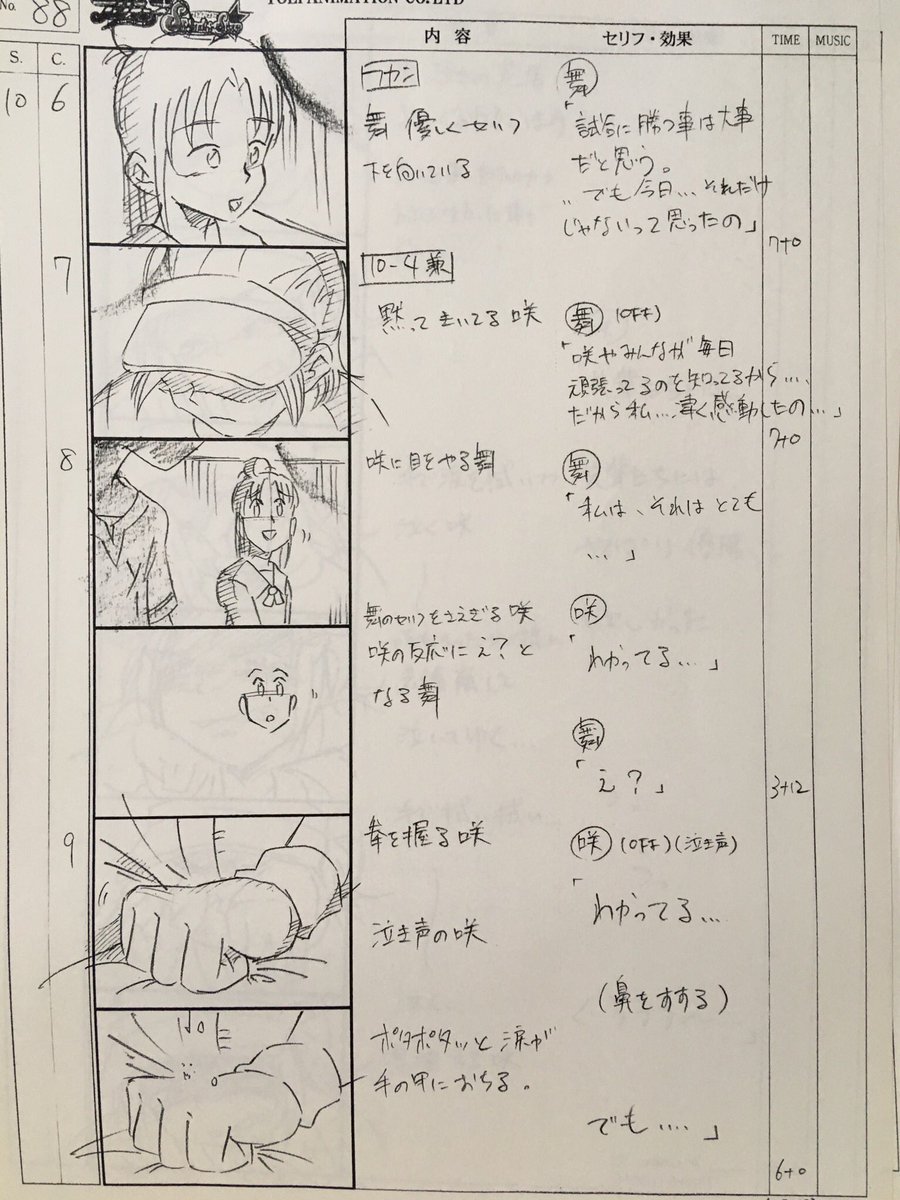 TOEI ANIMATION CO.,LTD
No. 88
S. C. 内容 セリフ・効果 TIME MUSIC
10 6
フカン
舞 優しくセリフ
下を向いている
舞
「試合に勝つ事は大事
だと思う。
でも今日…それだけ
じゃないって思ったの」
7+0
7
10-4兼
黙ってきいてる咲
舞 (OFF)
「咲やみんなが毎日
頑張ってるのを知ってるから….
だから私….凄く感動したの…」
7+0
8
咲に目をやる舞
舞
「私は、それはとても
…」
舞のセリフをさえぎる咲
咲の反応にえ？と
なる舞
咲
「わかってる…」
舞
「え？」
3+12
9
拳を握る咲
咲 (OFF)(泣き声)
「わかってる…
泣き声の咲
(鼻をすする)
ポタポタッと涙が
手の甲におちる。
でも….」
6+0